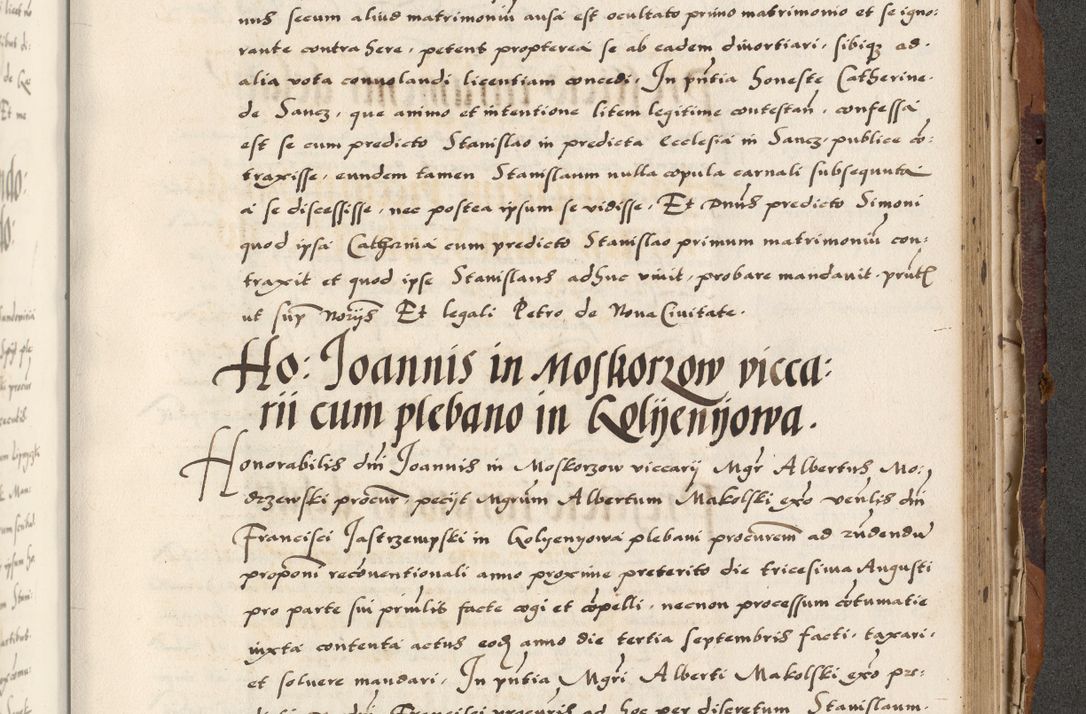 nus secum aliud matrimoniū ausa est ocultato primo matrimonio et se igno:
rante contra here, petens propterea se ab eadem divortiari, sibiq; ad
alia vota convolandi licentiam concedi, In pn̄tia honeste Catherine
de Sancz, que animo et intentione litem legitime contestan̄, confessa
est se cum predicto Stanislao in predicta ecclesia in Sancz, publice cō:
traxisse, eundem tamen Stanislaum nulla copula carnali subsequuta
a se discessisse, nec postea ipsum se vidisse, Et Dn̄us predicto Simoni
quod ipsa Catherina cum predicto Stanislao primum matrimoniū con:
traxit et quod ipse Stanislaus adhuc vivit, probare mandavit,
ut Et legali Petro de Nova Civitate.
Ho: Joannis in Moskorzow vicca:
rii cum plebano in Kolyenyowa.
Honorabilis dn̄i Joannis in Moskorzow viccarij Mgr̄ Albertus Mo:
drzewski procur̄, pecijt Mgrūm Albertum Makolski, exo ven̄lis dn̄i
Francisci Jastrzempski in Kolyenyowa plebani procurem̄ ad
reconventionali anno proxime preterito die tricesima Augusti
pro parte sui prin̄lis facte cogi et cōpelli, necnon processum cōtumatie
iuxta contenta actus eod anno die tertia septembris facti, taxari,
et solvere mandari, In pn̄tia Mgr̄i Alberti Makolski exo pre:
dn̄i Francisci procuris ad hoc per discretum Stanislaum